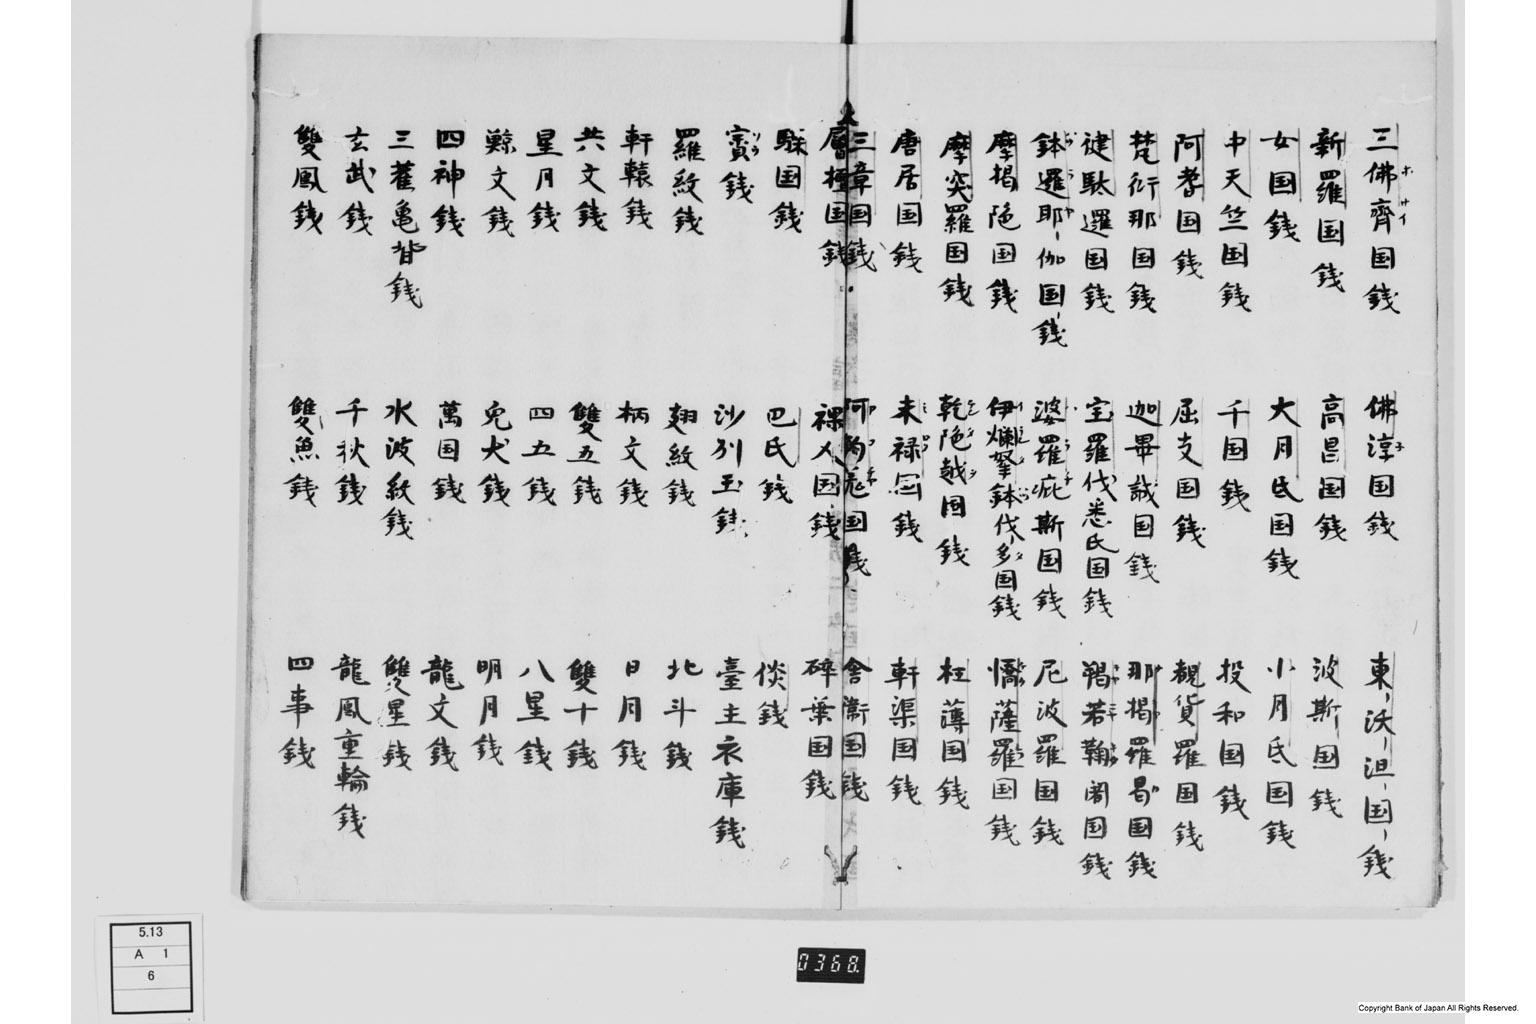 三佛齊国銭
佛淳国銭
東沃沮国銭
新羅国銭
高昌国銭
波斯国銭
女国銭
大月氏国銭
小月氏国銭
中天竺国銭
千国銭
投和国銭
阿耆国銭
屈支国銭
覩貨羅国銭
梵衍那国銭
迦畢試国銭
那掲羅曷国銭
健駄邏国銭
宝羅伐悉氏国銭
羯若鞠闍国銭
鉢邏耶伽国銭
婆羅痆斯国銭
尼波羅国銭
摩掲陁国銭
伊爛拏鉢伐多国銭
憍薩羅国銭
摩突羅国銭
乾陁越国銭
枉薄国銭
唐居国銭
未禄国銭
軒渠国銭
三章国銭
阿鈎羗国銭
舎衛国銭
層檀国銭
裸人国銭
碎葉国銭
騾国銭
巴氏銭
倓銭
賨銭
沙別玉銭
臺主衣庫銭
羅紋銭
翅紋銭
北斗銭
軒轅銭
柄文銭
日月銭
共文銭
雙五銭
雙十銭
星月銭
四五銭
八星銭
鯨文銭
兎犬銭
明月銭
四神銭
萬国銭
龍文銭
三雀亀背銭
水波紋銭
雙星銭
玄武銭
千秋銭
龍鳳重輪銭
雙鳳銭
雙魚銭
四事銭
5.13
A 1
6
0368.
Copyright Bank of Japan All Rights Reserved.